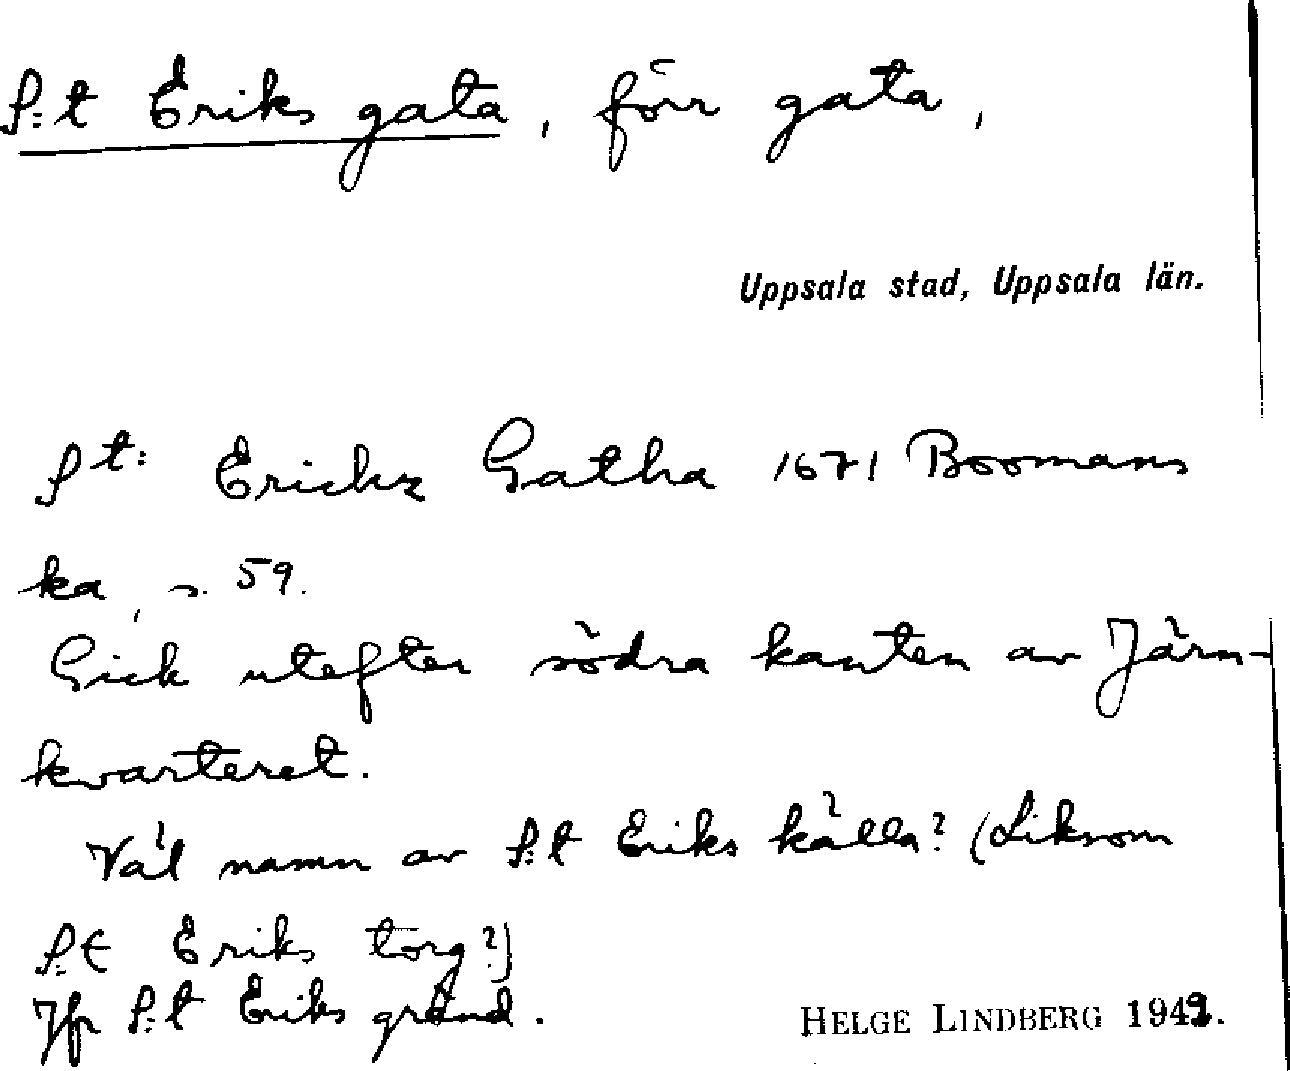 S:t Eriks gata, förr gata,
Uppsala stad, Uppsala län.
St: Erichz Gatha 1671 Boomans
ka, s. 59.
Gick utefter södra kanten av Järn-
kvarteret.
Väl namn av S:t Eriks källa? (Liksom
S:t Eriks torg?)
Jfr S:t Eriks gränd.
HELGE LINDBERG 1949.